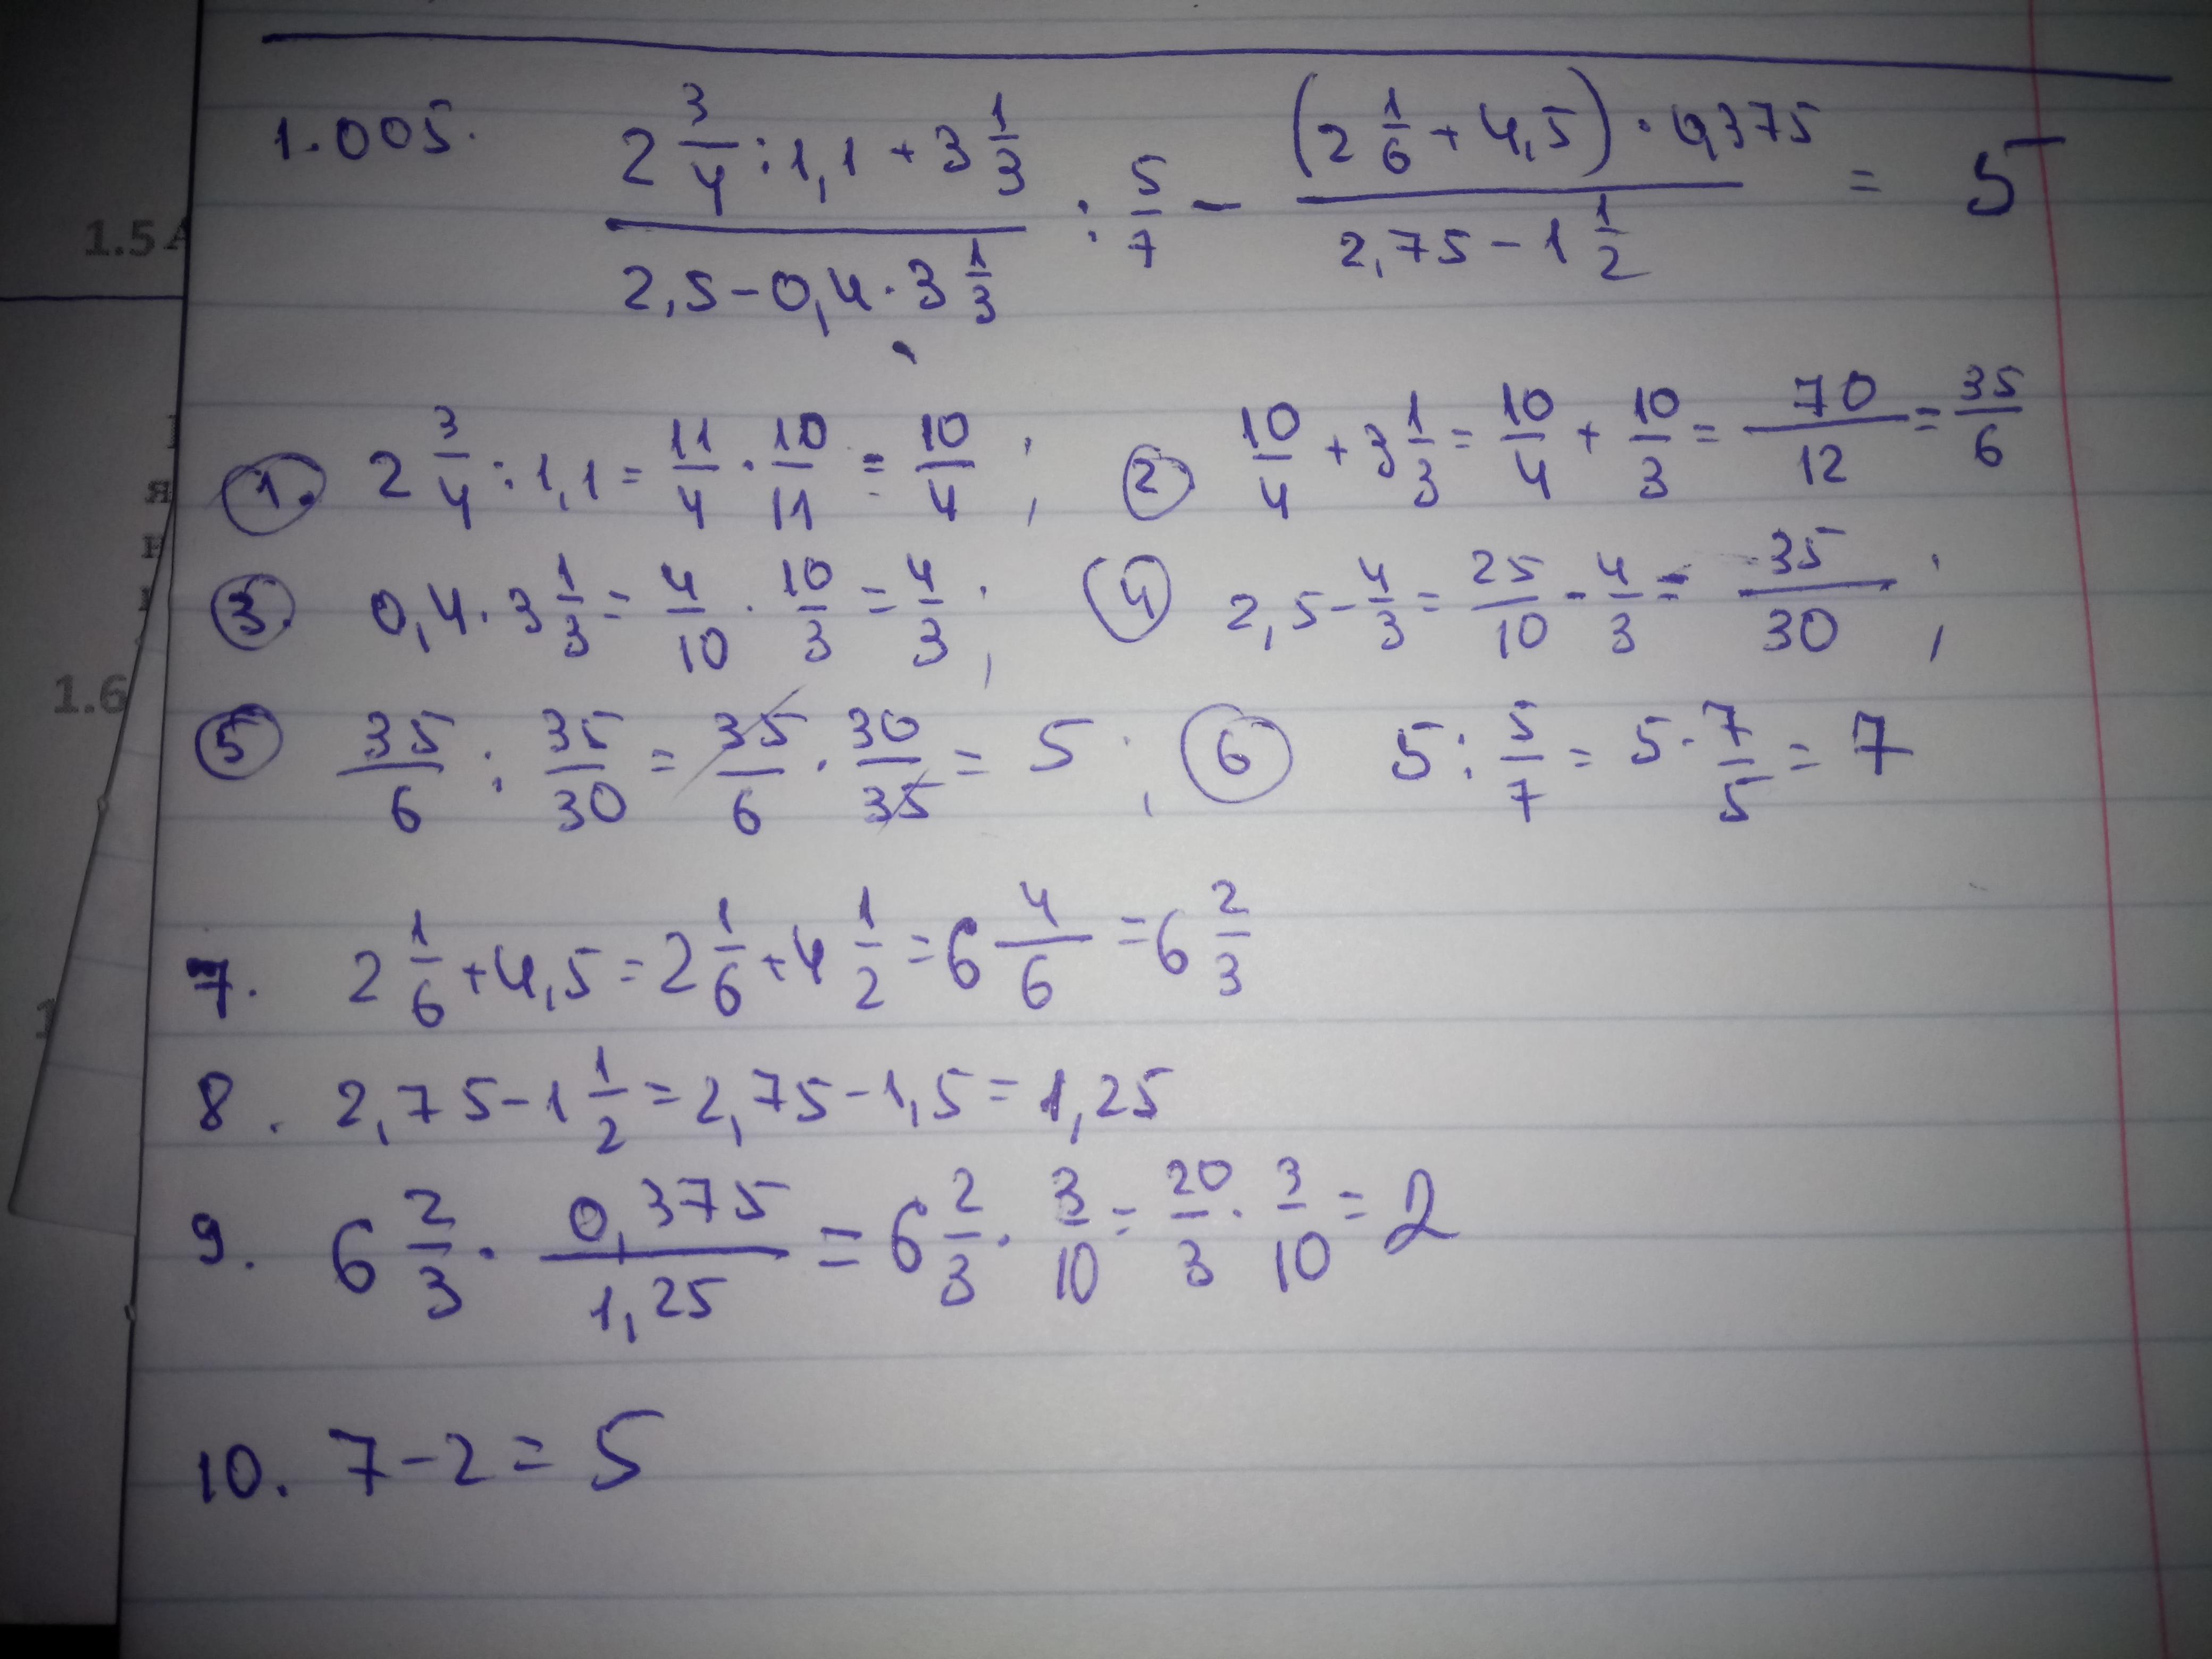 1.005. (2 3/4 : 1,1 + 3 1/3) / (2,5 - 0,4 · 3 1/3) : 5/7 - ((2 1/6 + 4,5) · 0,375) / (2,75 - 1 1/2) = 5
1. 2 3/4 : 1,1 = 11/4 · 10/11 = 10/4 ; 2 10/4 + 3 1/3 = 10/4 + 10/3 = 70/12 = 35/6
3. 0,4 · 3 1/3 = 4/10 · 10/3 = 4/3 ; 4 2,5 - 4/3 = 25/10 - 4/3 = 35/30 ;
5 35/6 : 35/30 = 35/6 · 30/35 = 5 ; 6 5 : 5/7 = 5 · 7/5 = 7
7. 2 1/6 + 4,5 = 2 1/6 + 4 1/2 = 6 4/6 = 6 2/3
8. 2,75 - 1 1/2 = 2,75 - 1,5 = 1,25
9. 6 2/3 · 0,375/1,25 = 6 2/3 · 3/10 = 20/3 · 3/10 = 2
10. 7 - 2 = 5
1.5
1.6